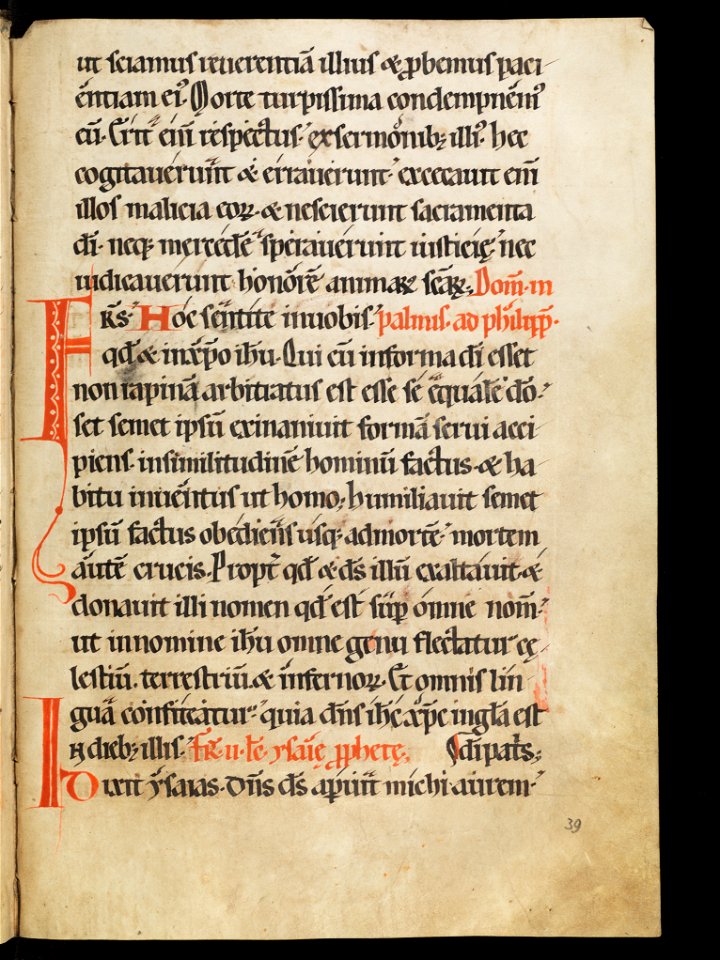 ut sciamus reuerentiā illius & ꝓbemus paci-
entiam eiꝰ. Morte turpissima condempnemꝰ
eū. Erit̄ eni̅ respectus ex sermonib; illiꝰ. hec
cogitauerunt & errauerunt. excecauit eni̅
illos malicia eoꝝ. & nescierunt sacramenta
d̄i. neq; mercedē sperauerunt iusticię nec
iudicauerunt honorē animaꝝ sc̄aꝝ. Dom̄. in
palmis. ad philipp̄.
FRS̄. Hoc sentite in uobis.
qd̄ & in xp̄o ih̄u. Qui cū in forma d̄i esset
non rapinā arbitratus est esse se equalē d̄o.
set semet ipsū exinaniuit formā serui acci-
piens. in similitudinē hominū factus. & ha-
bitu inuentus ut homo. humiliauit semet
ipsū factus obediens usq; ad mortē. mortem
autē crucis. Propt̄ qd̄ & d̄s illū exaltauit. &
donauit illi nomen qd̄ est sup̄ omne nom̄.
ut in nomine ih̄u omne genu flectatur cę-
lestiū. terrestriū. & infernoꝝ. Et omnis lin-
gua confiteatur. quia dn̄s ih̄c xp̄c in gl̄a est
d̄i pat̄s.
IN dieb; illis. Fr̄. ii. łe. ysaię ꝓphetę.
Dixit ysaias. Dn̄s d̄s aperuit michi aurem.
39